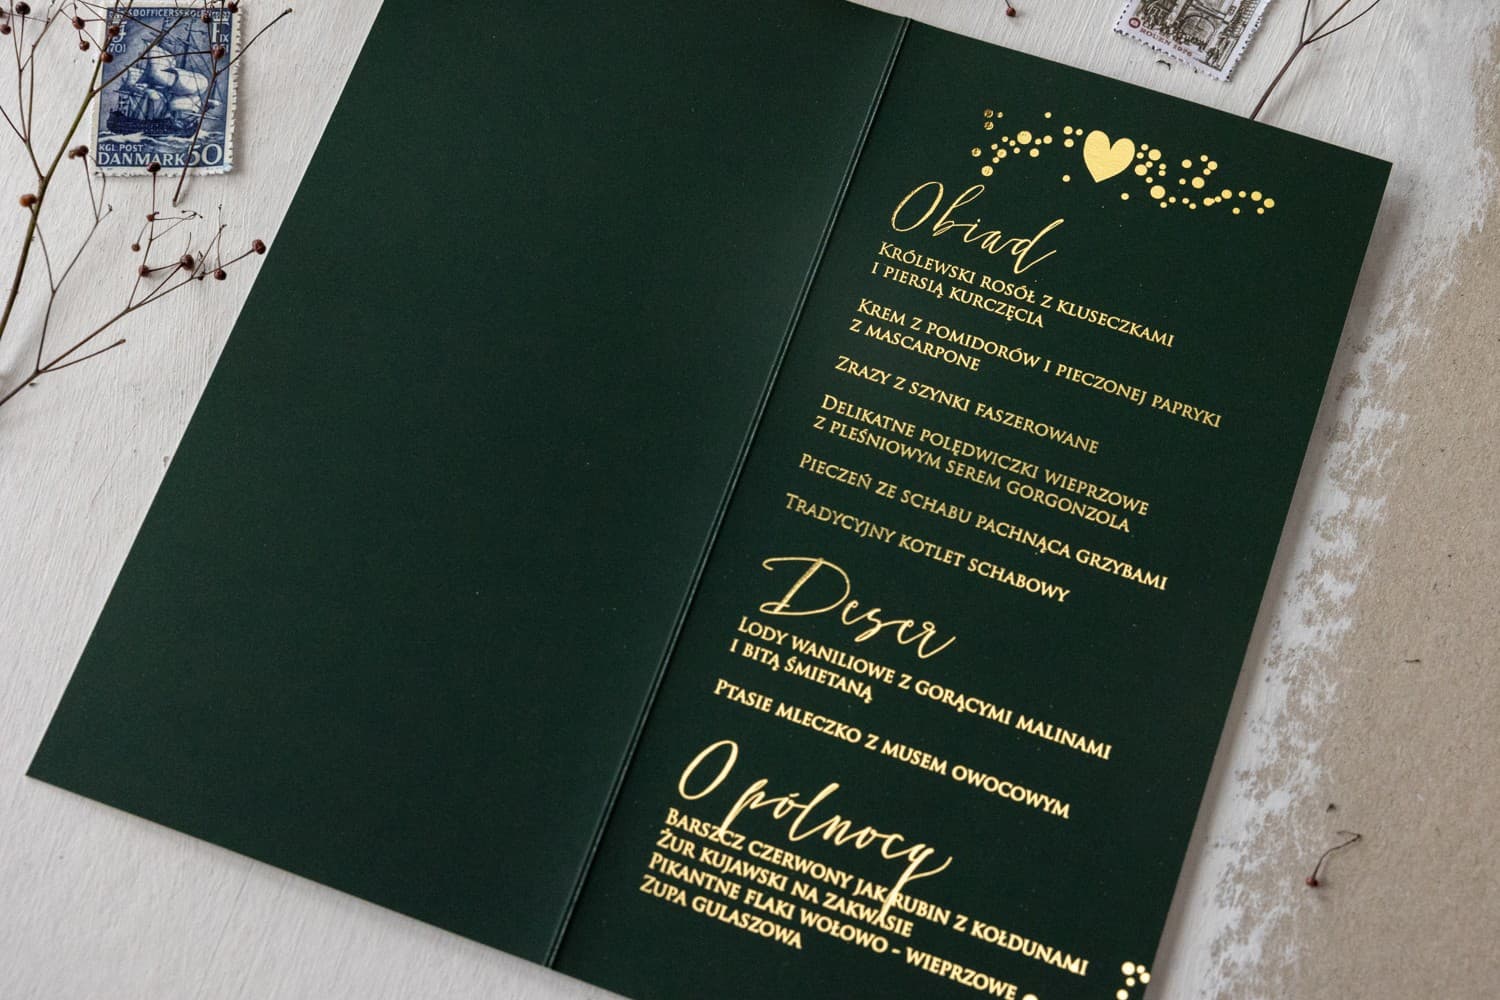 SØOFFICERSSKOLEN
1701
KGL. POST
DANMARK 50
ROUEN 1976
Obiad
Królewski rosół z kluseczkami
i piersią kurczęcia
Krem z pomidorów i pieczonej papryki
z mascarpone
Zrazy z szynki faszerowane
Delikatne polędwiczki wieprzowe
z pleśniowym serem gorgonzola
Pieczeń ze schabu pachnąca grzybami
Tradycyjny kotlet schabowy
Deser
Lody waniliowe z gorącymi malinami
i bitą śmietaną
Ptasie mleczko z musem owocowym
O północy
Barszcz czerwony jak rubin z kołdunami
Żur kujawski na zakwasie
Pikantne flaki wołowo - wieprzowe
Zupa gulaszowa